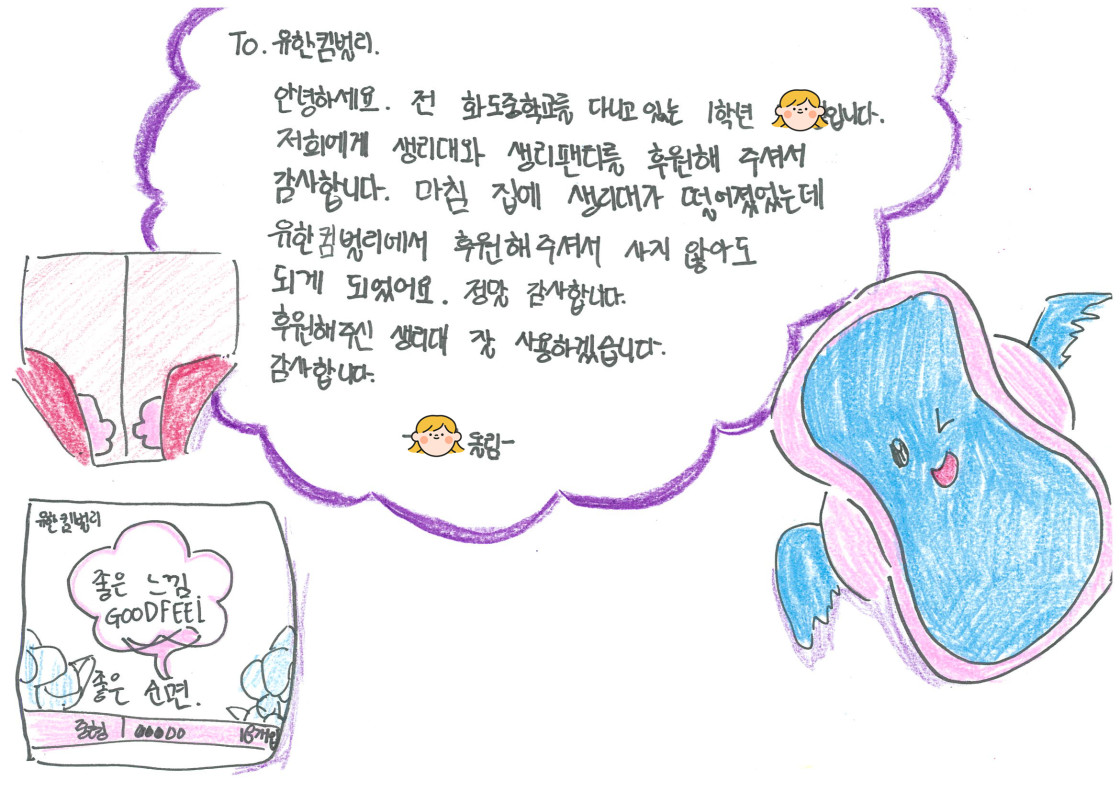 To. 유한킴벌리.
안녕하세요. 전 화도중학교를 다니고 있는 1학년 입니다.
저희에게 생리대와 생리팬티를 후원해 주셔서
감사합니다. 마침 집에 생리대가 떨어졌었는데
유한킴벌리에서 후원해주셔서 사지 않아도
되게 되었어요. 정말 감사합니다.
후원해주신 생리대 잘 사용하겠습니다.
감사합니다.
- 올림-
유한킴벌리
좋은 느낌
GOODFEEL
좋은 순면.
중형 00000 18개입